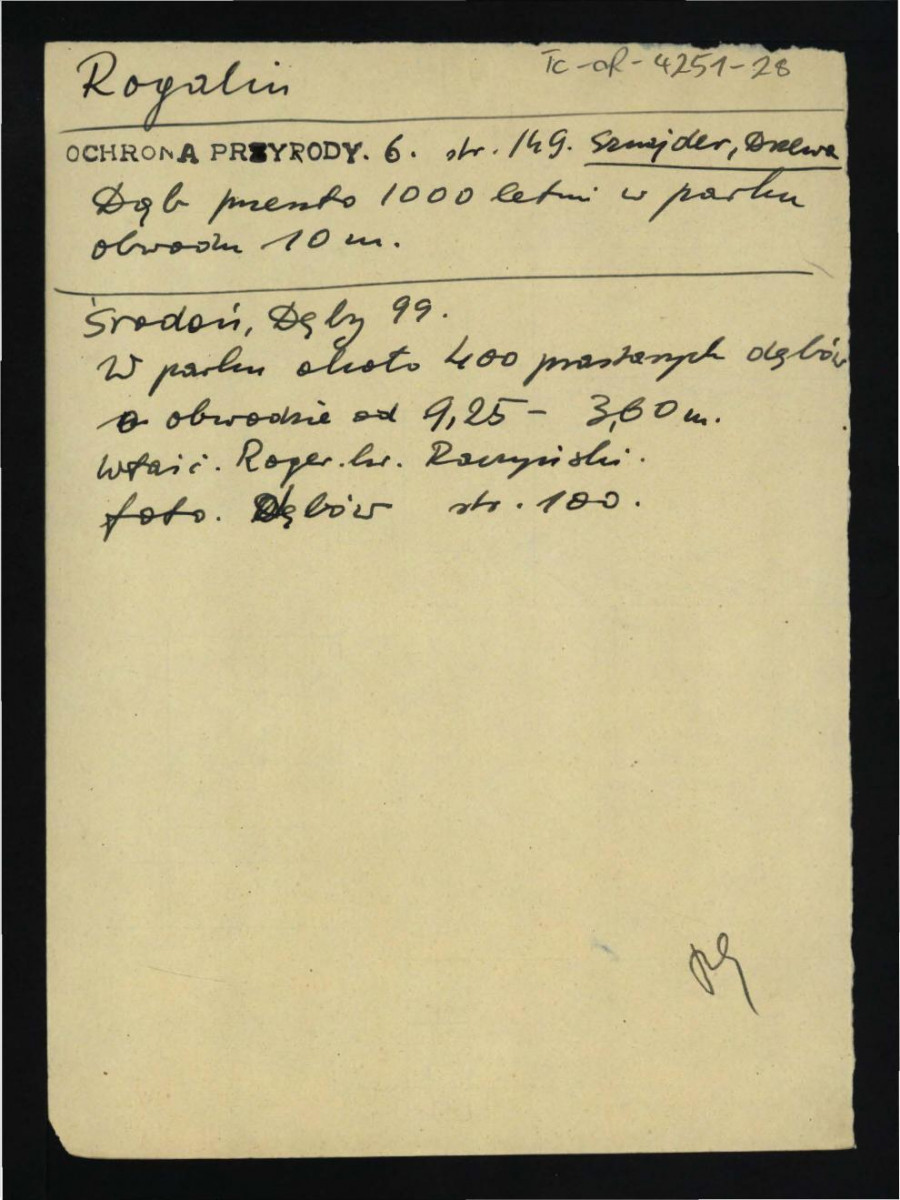 Rogalin
Tc-of-4251-28
OCHRONA PRZYRODY. 6. str. 149. Sznajder, Drzewa
Dąb przeszło 1000 letni w parku
obwodu 10 m.
Środoń, Dęby 99.
W parku około 400 prastarych dębów
o obwodzie od 9,25 - 3,60 m.
właśc. Roger. hr. Raczyński.
foto. Dębów str. 100.